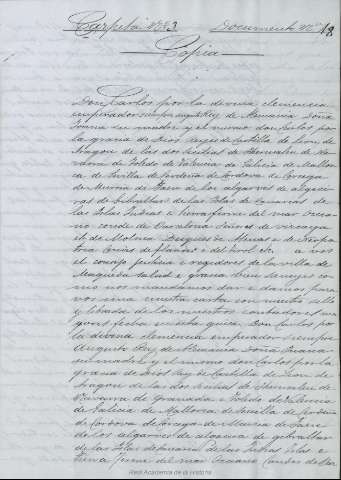 Carpeta nº 3 Documento nº 18
Copia
Don Carlos por la divina clemencia
emperador semper augusto Rey de Alemania Doña
Joana su madre y el mismo don Carlos por
la gracia de Dios Reyes de Castilla de Leon de
Aragon de las dos Sicilias de Jherusalen de Na
varra de Toledo de Valencia de Galicia de Mallor
ca de Sevilla de Cerdeña de Cordova de Corcega
de Murcia de Jaen de los algarves de algeci
ras de Gibraltar de las Islas de Canarias de
las Islas Indias e tierra firme del mar Ocea
no conde de Barcelona Señores de vizcaya
et de Molina Duques de Athenas e de Neopa
tria Condes de flandes e del tirol etc a vos
el concejo justicia e regidores de la villa de
Maqueda salud e gracia bien sepades co
mo nos mandamos dar e damos para
vos una nuestra carta con nuestro sello
y librada de los nuestros contadores ma
yores fecha en esta guisa Don Carlos por
la divina clemencia emperador semper
Augusto Rey de Alemania Doña Juana
su madre y el mismo don Carlos por la
gracia de Dios Rey de Castilla de Leon de
Aragon de las dos Sicilias de Jherusalen de
Navarra de Granada e Toledo de Valencia
de Galicia de Mallorca de Sevilla de Cerdeña
de Cordova de Corcega de Murcia de Jaen
de los algarves de algecira de gibraltar
de las Islas de Canaria de las Indias Islas e
tierra firme del mar Oceano Condes de Bar
Real Academia de la Historia